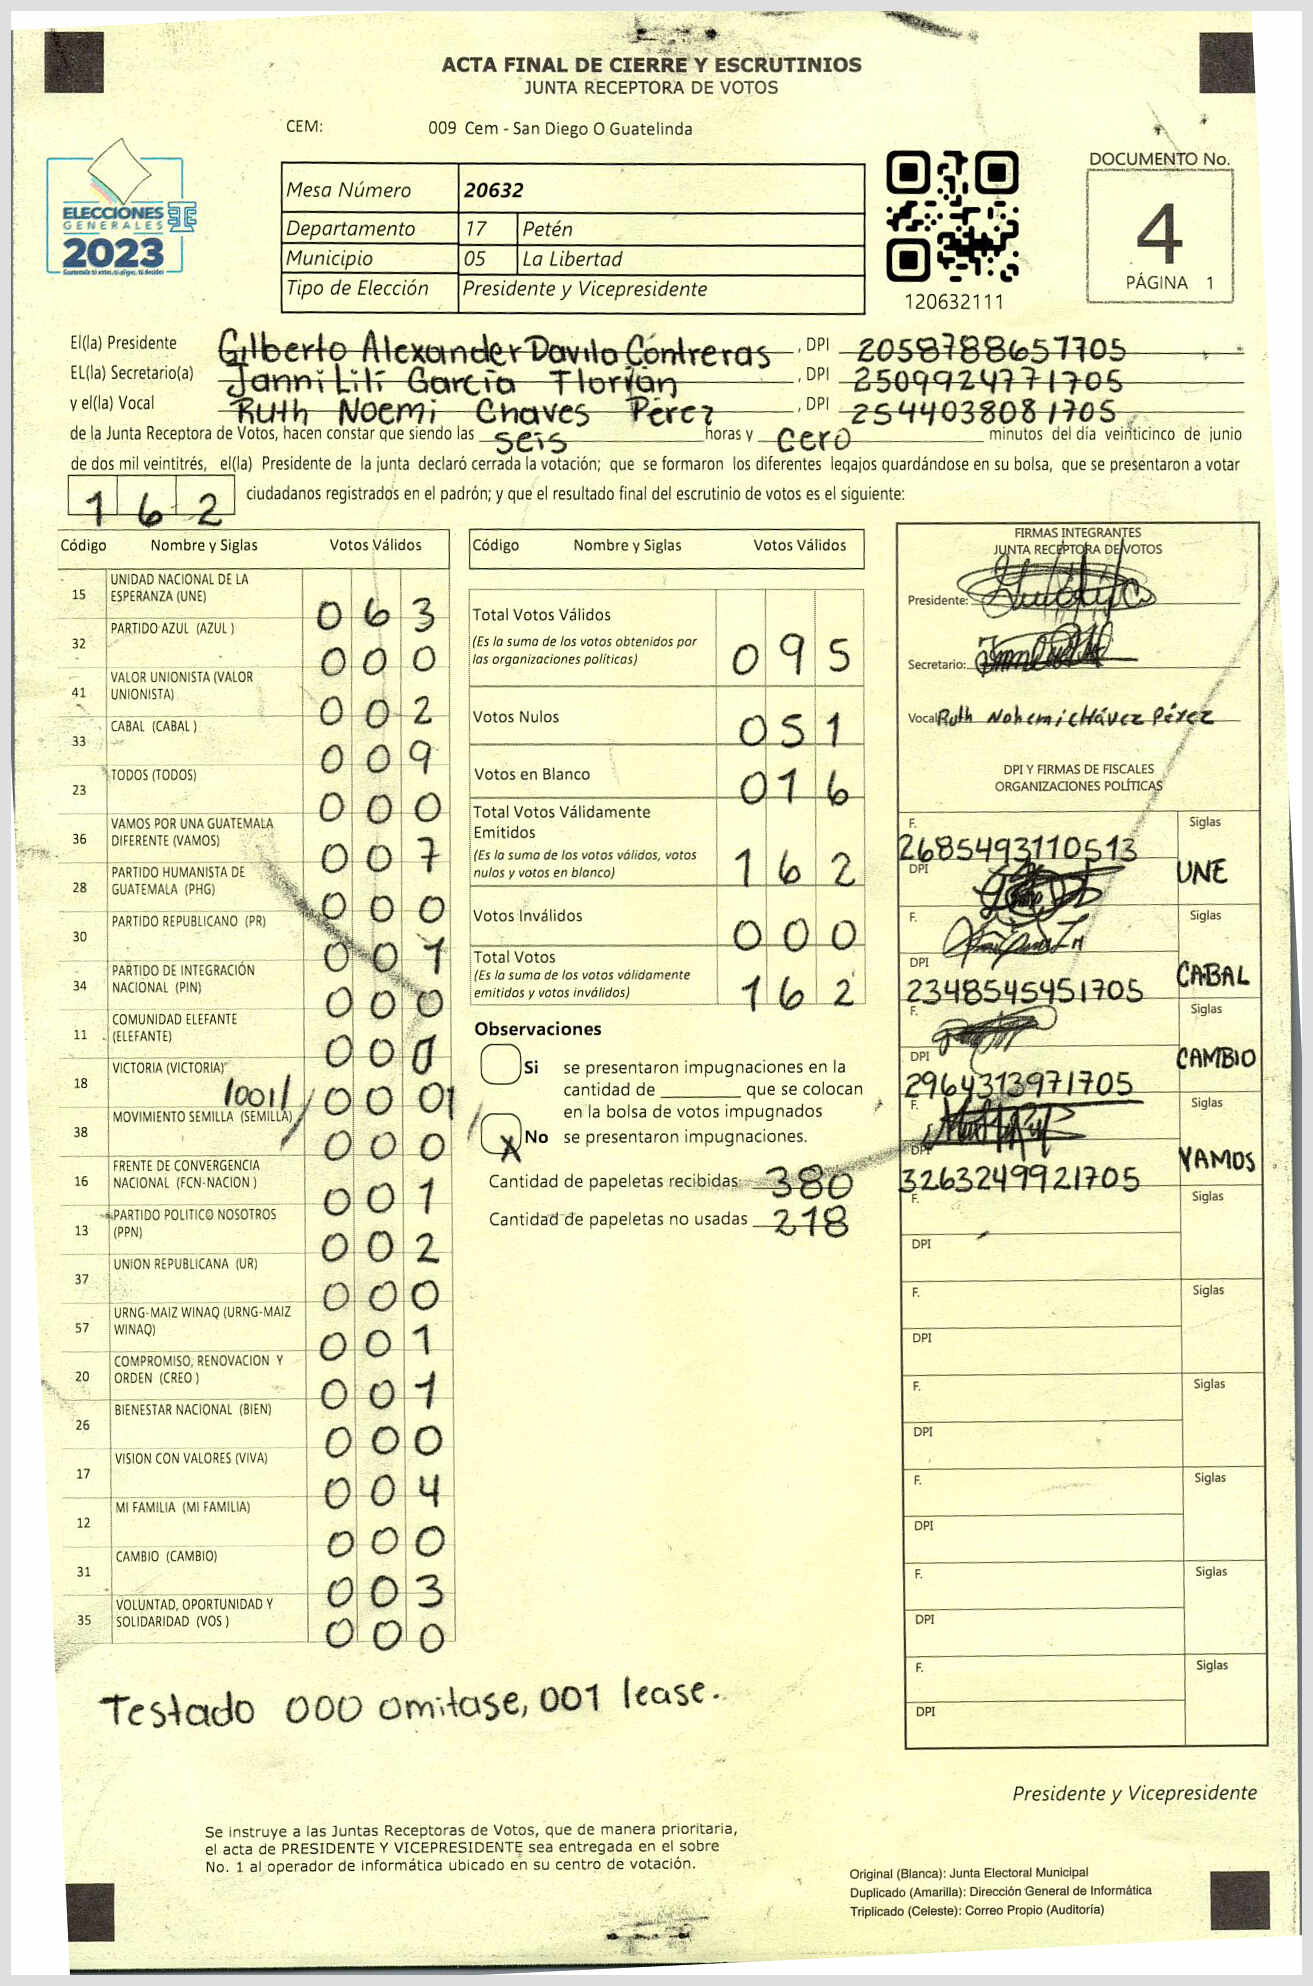 ACTA FINAL DE CIERRE Y ESCRUTINIOS
JUNTA RECEPTORA DE VOTOS
CEM: 009 Cem - San Diego O Guatelinda
ELECCIONES
GENERALES
2023
Mesa Número 20632
Departamento 17 Petén
Municipio 05 La Libertad
Tipo de Elección Presidente y Vicepresidente
120632111
DOCUMENTO No.
4
PÁGINA 1
El(la) Presidente Gilberto Alexander Davila Contreras, DPI 2058788657705
EL(la) Secretario(a) Janni Lili Garcia Florian, DPI 2509924771705
y el(la) Vocal Ruth Noemi Chaves Pérez, DPI 2544038081705
de la Junta Receptora de Votos, hacen constar que siendo las seis horas y cero minutos del día veinticinco de junio
de dos mil veintitrés, el(la) Presidente de la junta declaró cerrada la votación; que se formaron los diferentes legajos guardándose en su bolsa, que se presentaron a votar
162 ciudadanos registrados en el padrón; y que el resultado final del escrutinio de votos es el siguiente:
Código Nombre y Siglas Votos Válidos
15 UNIDAD NACIONAL DE LA ESPERANZA (UNE) 063
32 PARTIDO AZUL (AZUL ) 000
41 VALOR UNIONISTA (VALOR UNIONISTA) 002
33 CABAL (CABAL ) 009
23 TODOS (TODOS) 000
36 VAMOS POR UNA GUATEMALA DIFERENTE (VAMOS) 007
28 PARTIDO HUMANISTA DE GUATEMALA (PHG) 000
30 PARTIDO REPUBLICANO (PR) 001
34 PARTIDO DE INTEGRACIÓN NACIONAL (PIN) 000
11 COMUNIDAD ELEFANTE (ELEFANTE) 00
18 VICTORIA (VICTORIA) /001/ /000/
38 MOVIMIENTO SEMILLA (SEMILLA) 000
16 FRENTE DE CONVERGENCIA NACIONAL (FCN-NACION ) 001
13 PARTIDO POLITICO NOSOTROS (PPN) 002
37 UNION REPUBLICANA (UR) 000
57 URNG-MAIZ WINAQ (URNG-MAIZ WINAQ) 001
20 COMPROMISO, RENOVACION Y ORDEN (CREO ) 001
26 BIENESTAR NACIONAL (BIEN) 000
17 VISION CON VALORES (VIVA) 004
12 MI FAMILIA (MI FAMILIA) 000
31 CAMBIO (CAMBIO) 003
35 VOLUNTAD, OPORTUNIDAD Y SOLIDARIDAD (VOS ) 000
Testado 000 omitase, 001 lease.
Código Nombre y Siglas Votos Válidos
Total Votos Válidos 095
(Es la suma de los votos obtenidos por
las organizaciones políticas)
Votos Nulos 051
Votos en Blanco 016
Total Votos Válidamente
Emitidos 162
(Es la suma de los votos válidos, votos
nulos y votos en blanco)
Votos Inválidos 000
Total Votos 162
(Es la suma de los votos válidamente
emitidos y votos inválidos)
Observaciones
Si se presentaron impugnaciones en la
cantidad de ________ que se colocan
en la bolsa de votos impugnados
X No se presentaron impugnaciones.
Cantidad de papeletas recibidas 380
Cantidad de papeletas no usadas 218
FIRMAS INTEGRANTES
JUNTA RECEPTORA DE VOTOS
Presidente:
Secretario:
Vocal Ruth Nohemi Chávez Pérez
DPI Y FIRMAS DE FISCALES
ORGANIZACIONES POLÍTICAS
F. 2685493110513 Siglas
DPI UNE
F. Siglas
DPI 2348545451705 CABAL
F. Siglas
DPI 2964313971705 CAMBIO
F. Siglas
DPI 3263249921705 VAMOS
F. Siglas
DPI
F. Siglas
DPI
F. Siglas
DPI
F. Siglas
DPI
F. Siglas
DPI
F. Siglas
DPI
Presidente y Vicepresidente
Se instruye a las Juntas Receptoras de Votos, que de manera prioritaria,
el acta de PRESIDENTE Y VICEPRESIDENTE sea entregada en el sobre
No. 1 al operador de informática ubicado en su centro de votación.
Original (Blanca): Junta Electoral Municipal
Duplicado (Amarilla): Dirección General de Informática
Triplicado (Celeste): Correo Propio (Auditoría)